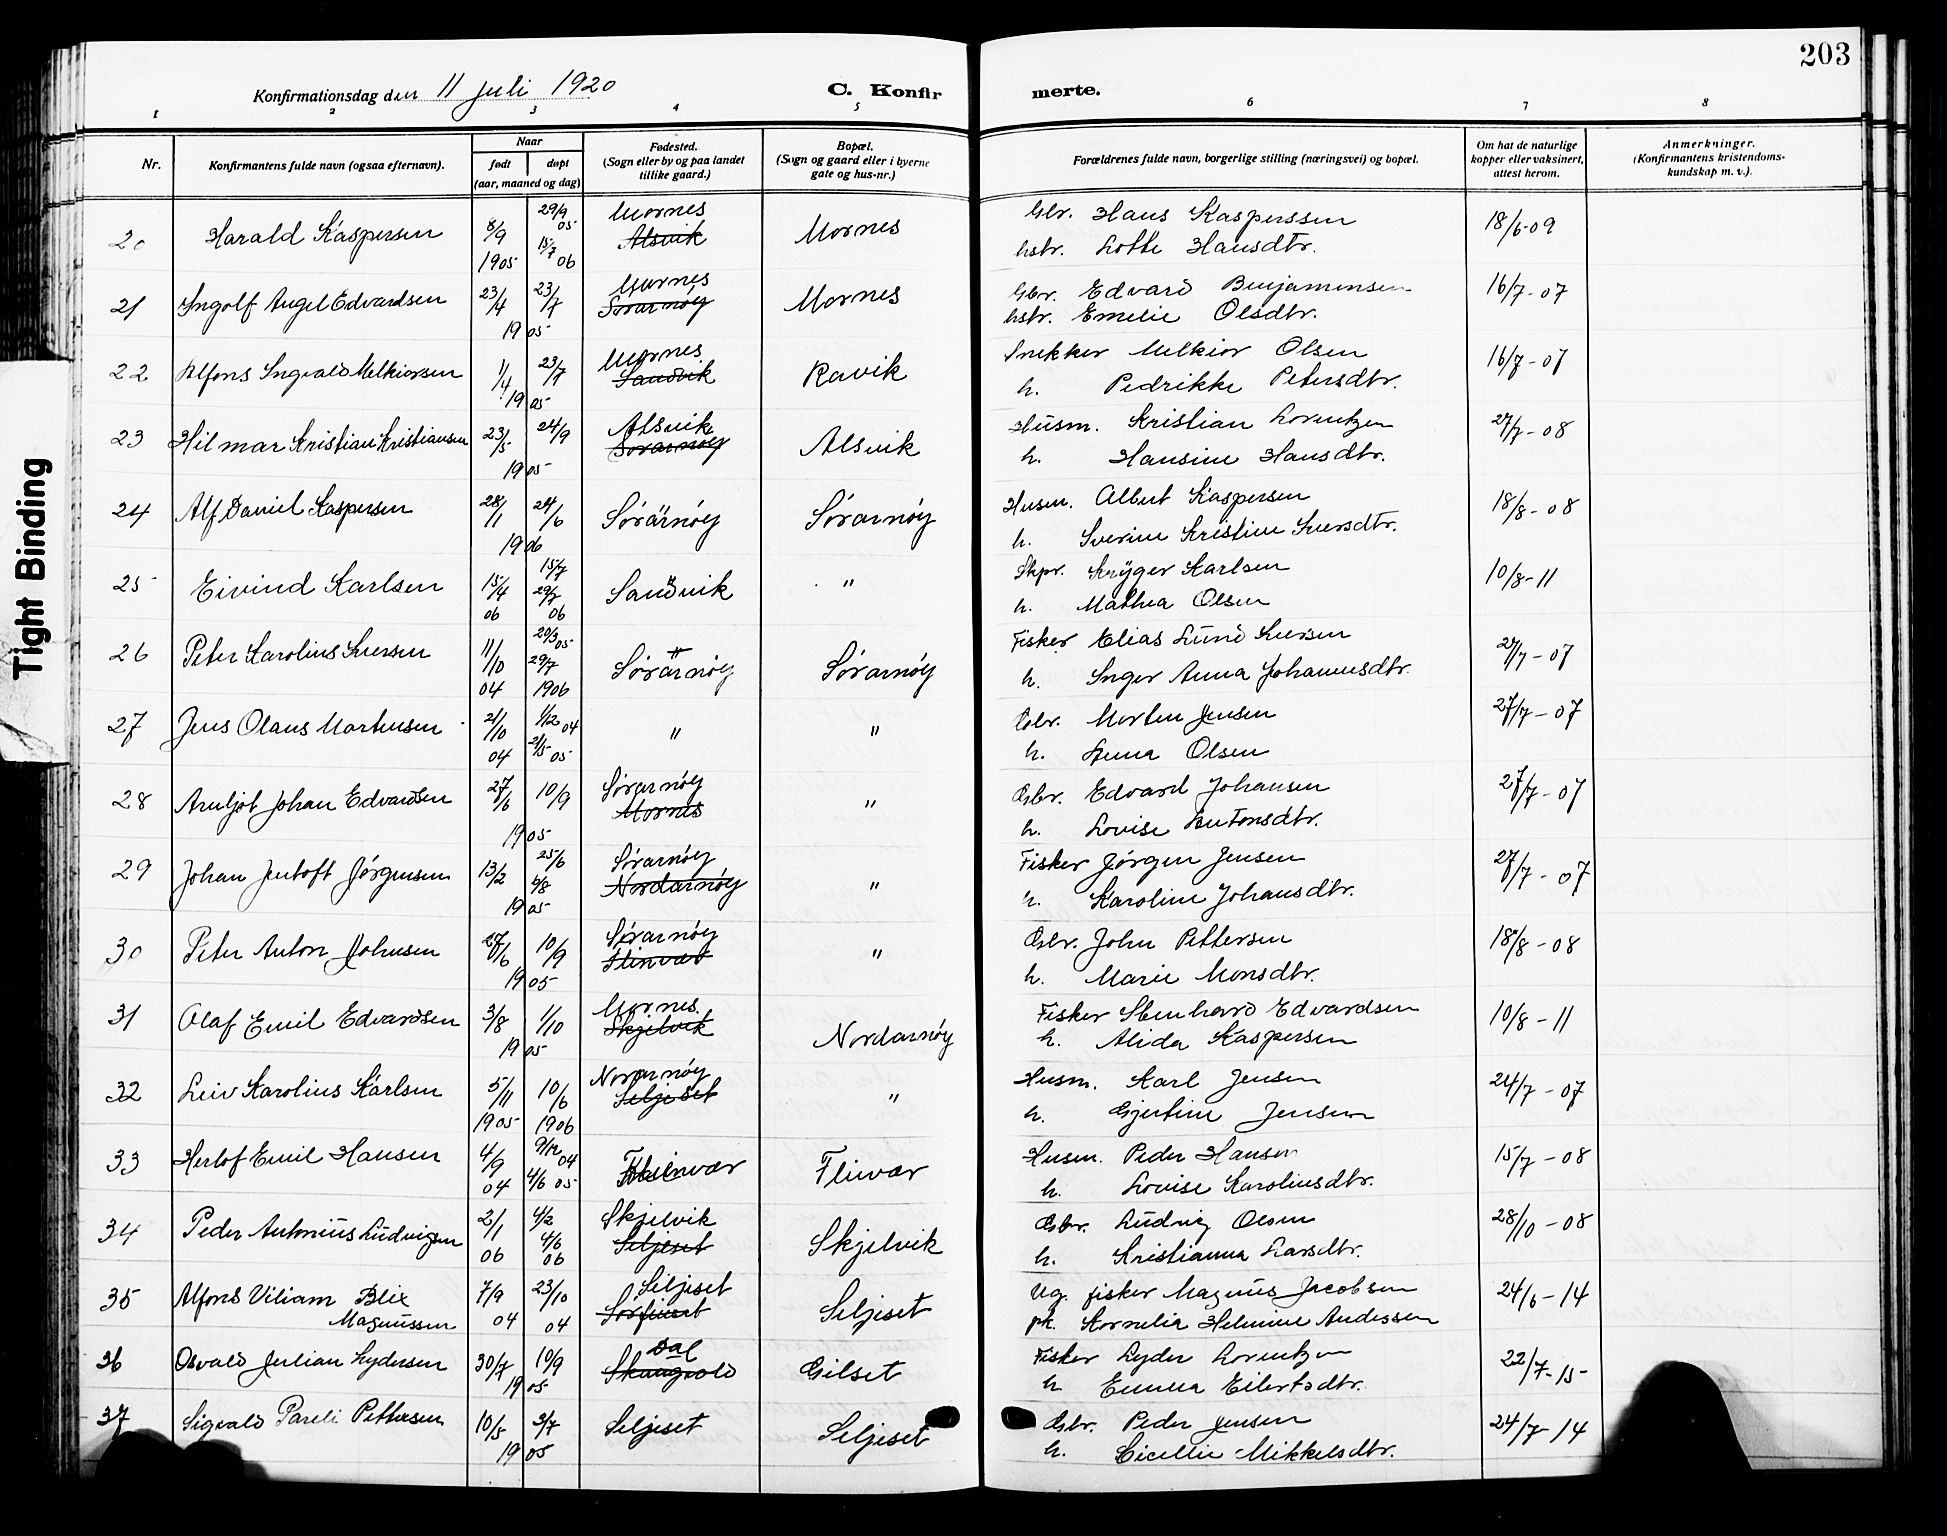 203
Konfirmationsdag den 11 juli 1920
C. Konfir
merte.
1 2 3 4 5 6 7 8
Nr.
Konfirmantens fulde navn (ogsaa efternavn).
Naar
født
døpt
(aar, maaned og dag)
Fødested.
(Sogn eller by og paa landet
tillike gaard.)
Bopæl.
(Sogn og gaard eller i byerne
gate og hus-nr.)
Forældrenes fulde navn, borgerlige stilling (næringsvei) og bopæl.
Om hat de naturlige
kopper eller vaksinert,
attest herom.
Anmerkninger.
(Konfirmantens kristendoms-
kundskap m. v.).
20 Harald Kaspersen 8/9 1905 29/9 05 15/7 06 Mornes Alsvik Mornes Gbr. Hans Kasperssen 18/6-09
hstr. Lotte Hansdtr.
21 Ingolf Angel Edvardsen 23/4 23/7 1905 Mornes Sørarnöy Mornes Gbr. Edvard Benjaminsen 16/7-07
hstr. Emelie Olsdtr.
22 Alfons Ingvald Melkiorsen 1/4 23/7 1905 Mornes Sandvik Ravik Snekker Melkior Olsen 16/7-07
h. Pedrikke Petersdtr.
23 Hilmar Kristian Kristiansen 23/5 24/9 1905 Alsvik Sørarnöy Alsvik Husm. Kristian Lorentzen 27/7-08
h. Hansine Hansdtr.
24 Alf Daniel Kaspersen 28/1 24/6 1906 Sørarnöy Sørarnöy Husm. Albert Kaspersen 18/8-08
h. Sverine Kristine Iversdtr.
25 Eivind Karlsen 15/4 06 15/7 29/7 06 Sandvik " Skpr. Krüger Karlsen 10/8-11
h. Mathea Olsen
26 Peter Karolius Iversen 11/10 04 20/3 05 29/7 1906 Sørarnöy Sørarnöy Fisker Elias Lund Iversen 27/7-07
h. Inger Anna Johannesdtr.
27 Jens Olaus Martensen 21/10 04 1/12 04 21/5 05 " " Gbr. Morten Jensen 27/7-07
h. Anna Olsen
28 Arnljot Johan Edvardsen 27/6 10/9 1905 Sørarnöy Mornes " Gbr. Edvard Johansen 27/7-07
h. Lovise Antonsdtr.
29 Johan Jentoft Jørgensen 13/2 25/6 6/8 1905 Sørarnöy Nordarnöy " Fisker Jørgen Jensen 27/7-07
h. Karoline Johansdtr.
30 Peter Anton Johnsen 27/6 10/9 1905 Sørarnöy Flinvær " Gbr. John Pettersen 18/8-08
h. Marie Monsdtr.
31 Olaf Emil Edvardsen 3/8 1/10 1905 Mornes. Skjelvik Nordarnöy Fisker Stenhard Edvardsen 10/8-11
h. Alida Kaspersen
32 Leiv Karolius Karlsen 5/11 1905 10/6 1906 Norarnöy Seljeset " Husm. Karl Jensen 24/7-07
h. Gjertine Jensen
33 Herlof Emil Hansen 4/9 04 9/12 04 4/6 05 Flinvær Flinvær Husm. Peder Hansen 15/7-08
h. Lovise Karoliusdtr.
34 Peder Antonius Ludvigsen 2/1 06 4/2 4/6 06 Skjelvik Seljeset Skjelvik Gbr. Ludvig Olsen 28/10-08
h. Kristianna Larsdtr.
35 Alfons Viliam Blix Magnussen 7/9 04 23/10 04 Seljeset Seljeset Ug. fisker Magnus Jacobsen 24/6-14
pk. Kornelia Helmine Andessen
36 Osvald Julian Lydersen 30/7 10/9 1905 Dal Skaugvold Gilset Fisker Lyder Lorentzen 22/7-15
h. Emma Eilertsdtr.
37 Sigvald Pareli Pettersen 10/5 3/7 1905 Seljeset Seljeset Gbr. Peder Jensen 24/7-14
h. Cicellie Mikkelsdtr.
Tight Binding